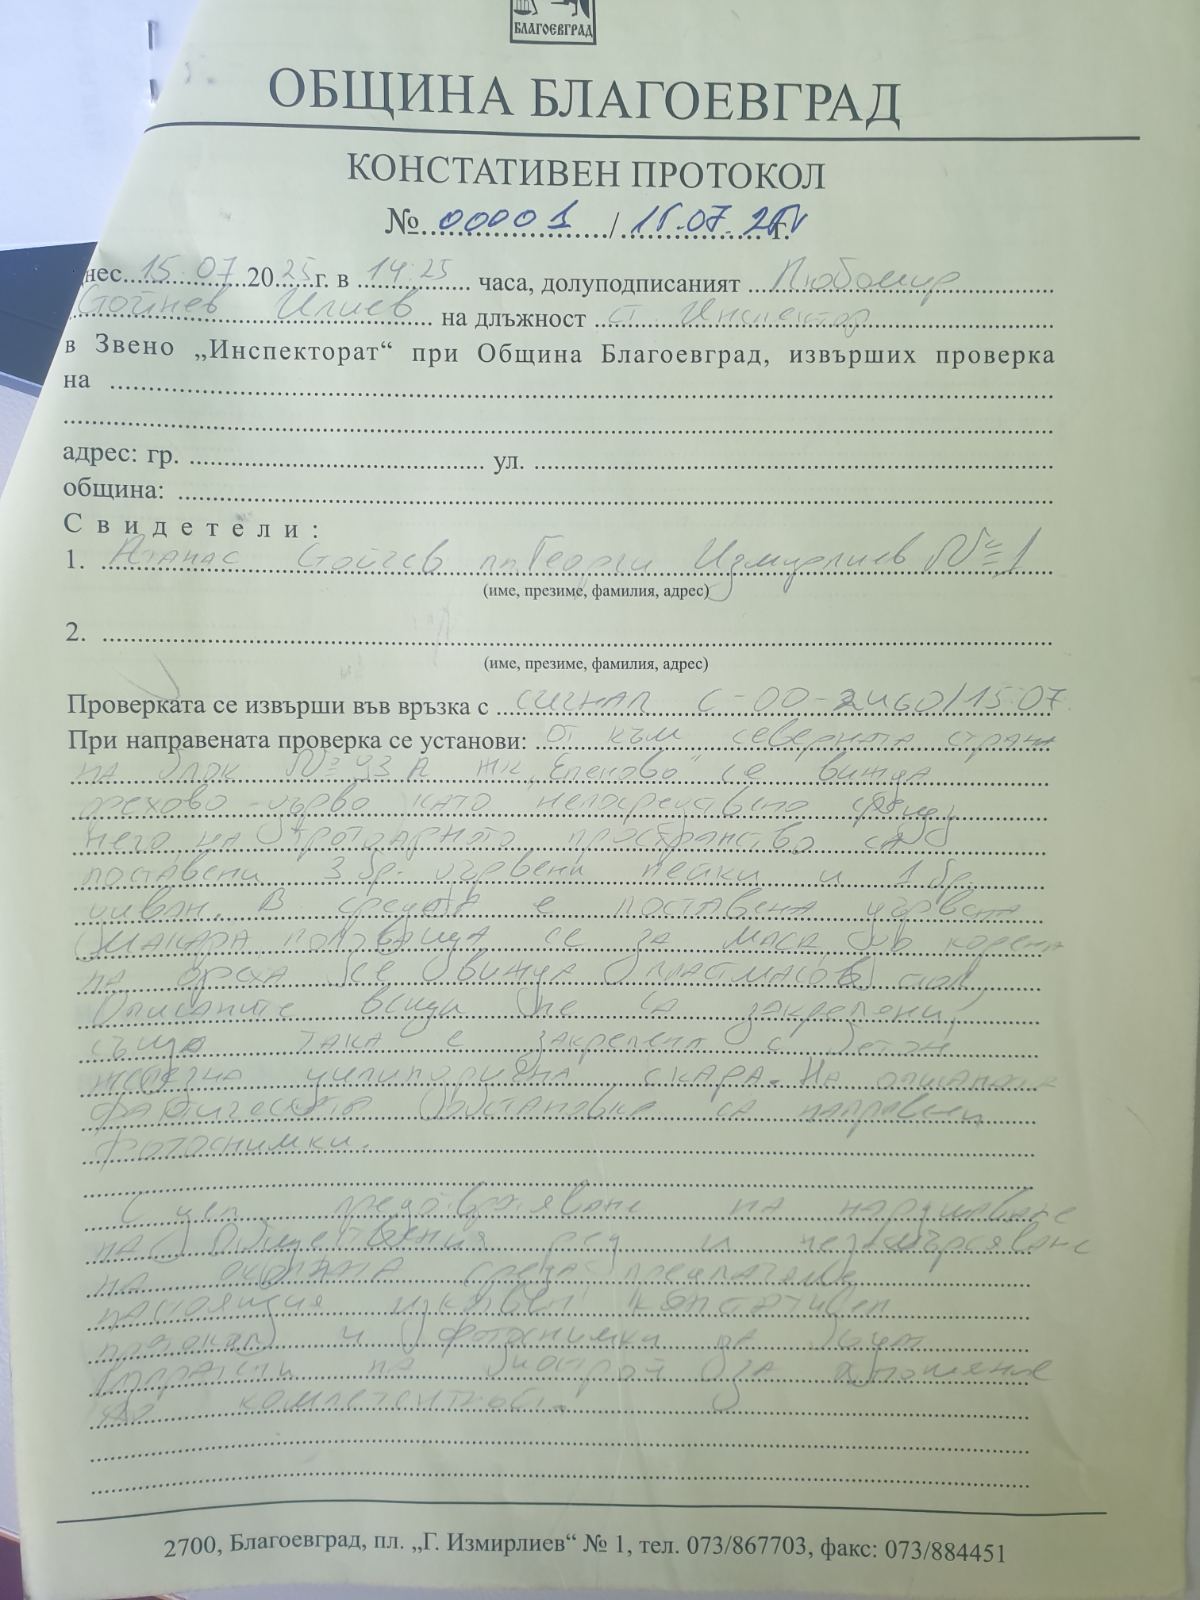 БЛАГОЕВГРАД
ОБЩИНА БЛАГОЕВГРАД
КОНСТАТИВЕН ПРОТОКОЛ
№ 00001 / 15.07.25 г.
нес 15.07 2025 г. в 14:25 часа, долуподписаният Любомир
Стойнев Илиев на длъжност ст. Инспектор
в Звено „Инспекторат“ при Община Благоевград, извърших проверка
на
адрес: гр. ул.
община:
Свидетели:
1. Атанас Стойчев пл. Георги Измирлиев № 1
(име, презиме, фамилия, адрес)
2.
(име, презиме, фамилия, адрес)
Проверката се извърши във връзка с сигнал С-00-2460/15.07.
При направената проверка се установи: от към северната страна
на блок № 93 А жк „Еленово“ се вижда
орехово дърво като непосредствено срещу
него на тротоарното пространство са
поставени 3 бр. дървени пейки и 1 бр.
диван. В средата е поставена дървена
макара ползваща се за маса в корена
на ореха се вижда пластмасов стол.
Описаните вещи не са закрепени,
също така е закрепена с бетон
желязна цилиндрична скара. На описаната
фактическа обстановка са направени
фотоснимки.
С цел предотвратяване на нарушаване
на обществения ред и незамърсяване
на околната среда предлагаме
настоящия констативен
протокол и фотоснимки да бъдат
изпратени на за отношение
по компетентност.
2700, Благоевград, пл. „Г. Измирлиев“ № 1, тел. 073/867703, факс: 073/884451